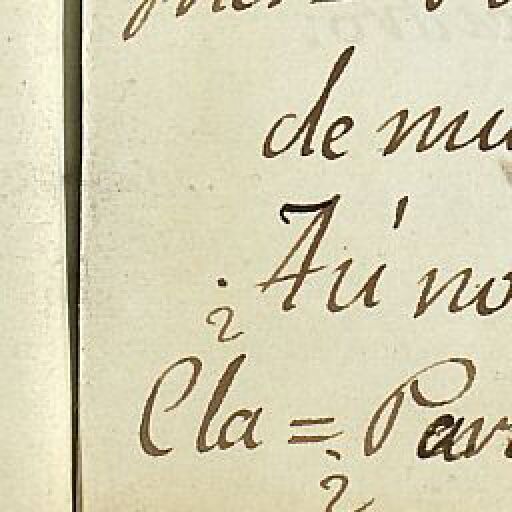 de mu
¿Aú no
Cla = Par
¿